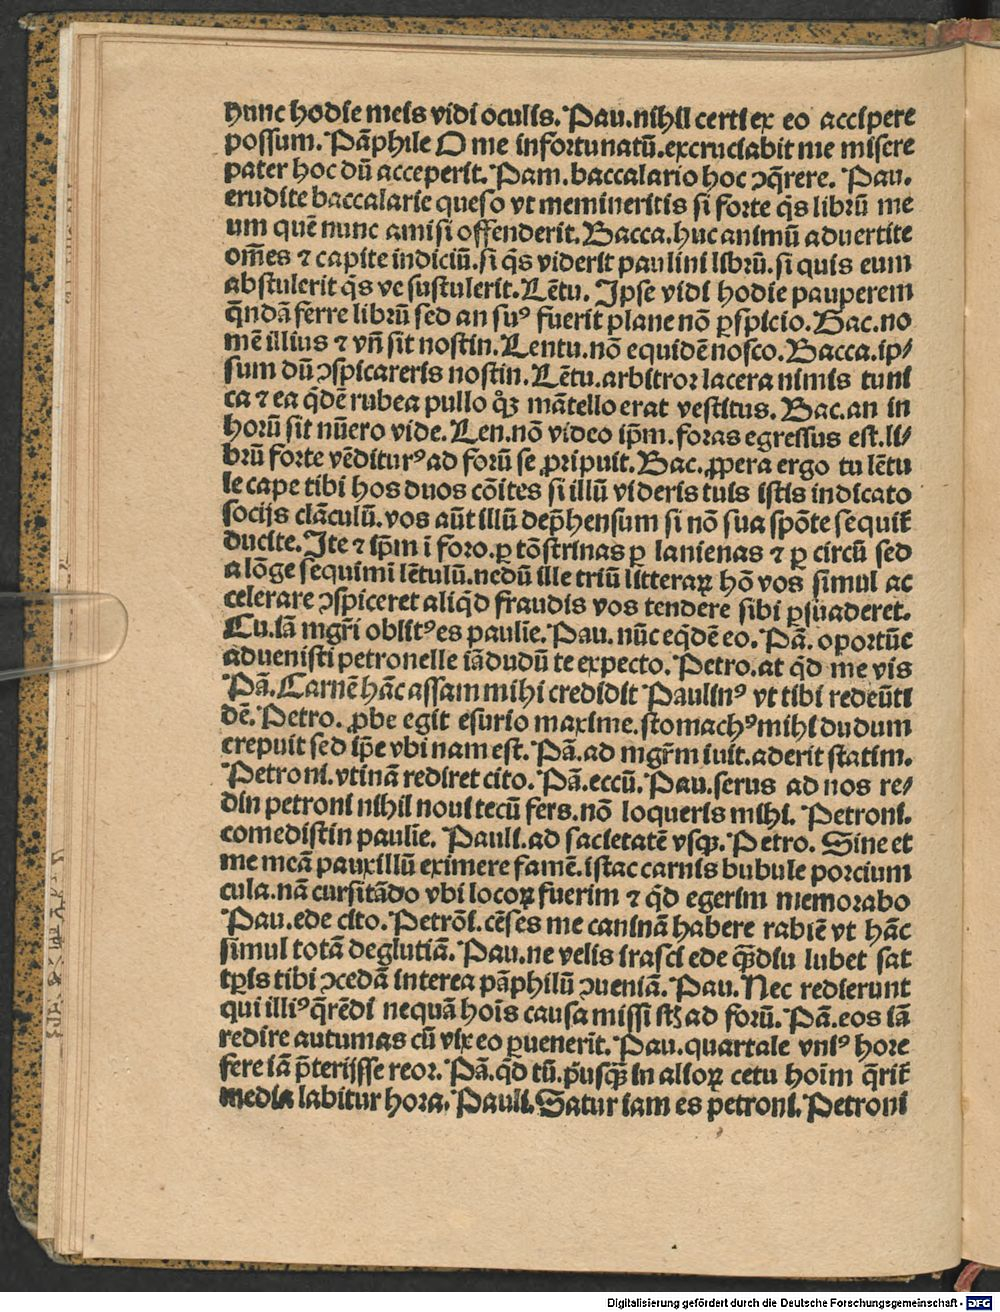 hunc hodie meis vidi oculis. Pau. nihil certi ex eo accipere
possum. Pāphile O me infortunatū. excruciabit me misere
pater hoc dū acceperit. Pam. baccalario hoc ↄq̄rere. Pau.
erudite baccalarie queso vt memineritis si forte q̄s librū me
um quē nunc amisi offenderit. Bacca. huc animū aduertite
om̄es ⁊ capite indiciū. si q̄s viderit paulini librū. si quis eum
abstulerit q̄s ve sustulerit. Lētu. Ipse vidi hodie pauperem
q̄ndā ferre librū sed an suꝰ fuerit plane nō ꝑspicio. Bac. no
mē illius ⁊ vn̄ sit nostin. Lentu. nō equidē nosco. Bacca. ip⸗
sum dū ↄspicareris nostin. Lētu. arbitror lacera nimis tuni
ca ⁊ ea q̄dē rubea pullo qͦꝫ mātello erat vestitus. Bac. an in
horū sit nūero vide. Len. nō video ip̄m. foras egressus est. li⸗
brū forte vēditurꝰ ad forū se ꝓripuit. Bac. ꝓpera ergo tu lētu
le cape tibi hos duos cōites si illū videris tuis istis indicato
socijs clāculū. vos aūt illū dep̄hensum si nō sua spōte sequit᷑
ducite. Ite ⁊ ip̄m ī foro. ꝑ tōstrinas ꝑ lanienas ⁊ ꝑ circū sed
a lōge sequimī lētulū. nedū ille triū litterarꝝ hō vos simul ac
celerare ↄspiceret aliq̄d fraudis vos tendere sibi ꝑsuaderet.
Tu. iā mgr̄i oblitꝰ es paulīe. Pau. nūc eq̄dē eo. Pā. oportūe
aduenisti petronelle iādudū te expecto. Petro. at q̄d me vis
Pā. Carnē hāc assam mihi credidit Paulinꝰ vt tibi redeūti
dē. Petro. ꝓbe egit esurio maxime. stomachꝰ mihi dudum
crepuit sed ip̄e vbi nam est. Pā. ad mgr̄m iuit. aderit statim.
Petroni. vtinā rediret cito. Pā. eccū. Pau. serus ad nos re⸗
din petroni nihil noui tecū fers. nō loqueris mihi. Petroni.
comedistin paulīe. Pauli. ad sacietatē vsqꝫ. Petro. Sine et
me meā pauxillū eximere famē. istac carnis bubule porcium
cula. nā cursitādo vbi locorꝝ fuerim ⁊ q̄d egerim memorabo
Pau. ede cito. Petrōi. cēses me caninā habere rabiē vt hāc
simul totā deglutiā. Pau. ne velis irasci ede qͣ̄diu lubet sat
tꝑis tibi ↄcedā interea pāphilū ↄueniā. Pau. Nec redierunt
qui illiꝰ q̄rēdi nequā hoīs causa missi st̄ ad forū. Pā. eos iā
redire autumas cū vix eo ꝑuenerit. Pau. quartale vniꝰ hore
fere iā p̄terijsse reor. Pā. q̄d tū. p̄usqͣ̄ in aliorꝝ cetu hoīm q̄rit᷑
media labitur hora. Pauli. Satur iam es petroni. Petroni
Digitalisierung gefördert durch die Deutsche Forschungsgemeinschaft - DFG